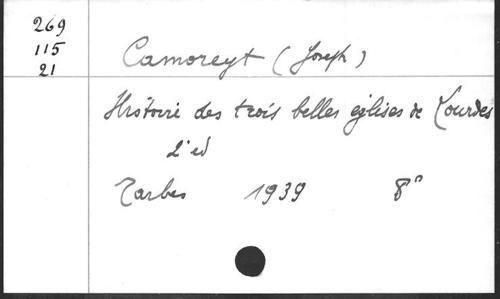 269
115
21
Camoreyt (Joseph)
Histoire des trois belles églises de Lourdes
2e ed
Tarbes 1939 8°